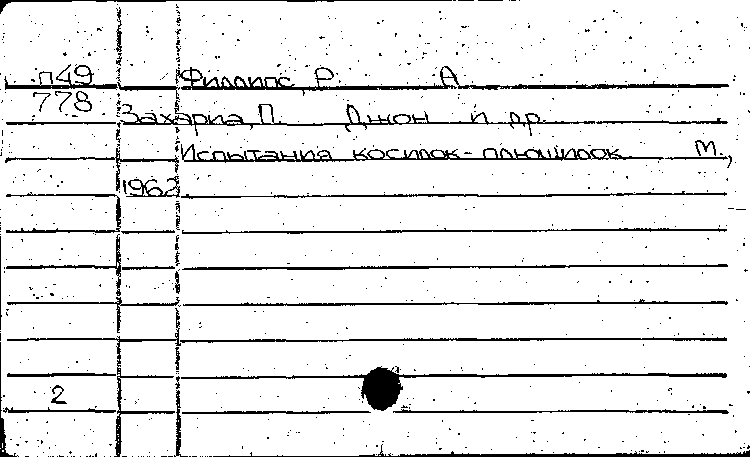 П49 Филлипс, Р. А.
778 Захариа, П. Джон и др.
Испытания косилок-плющилок. М.,
1962.
2